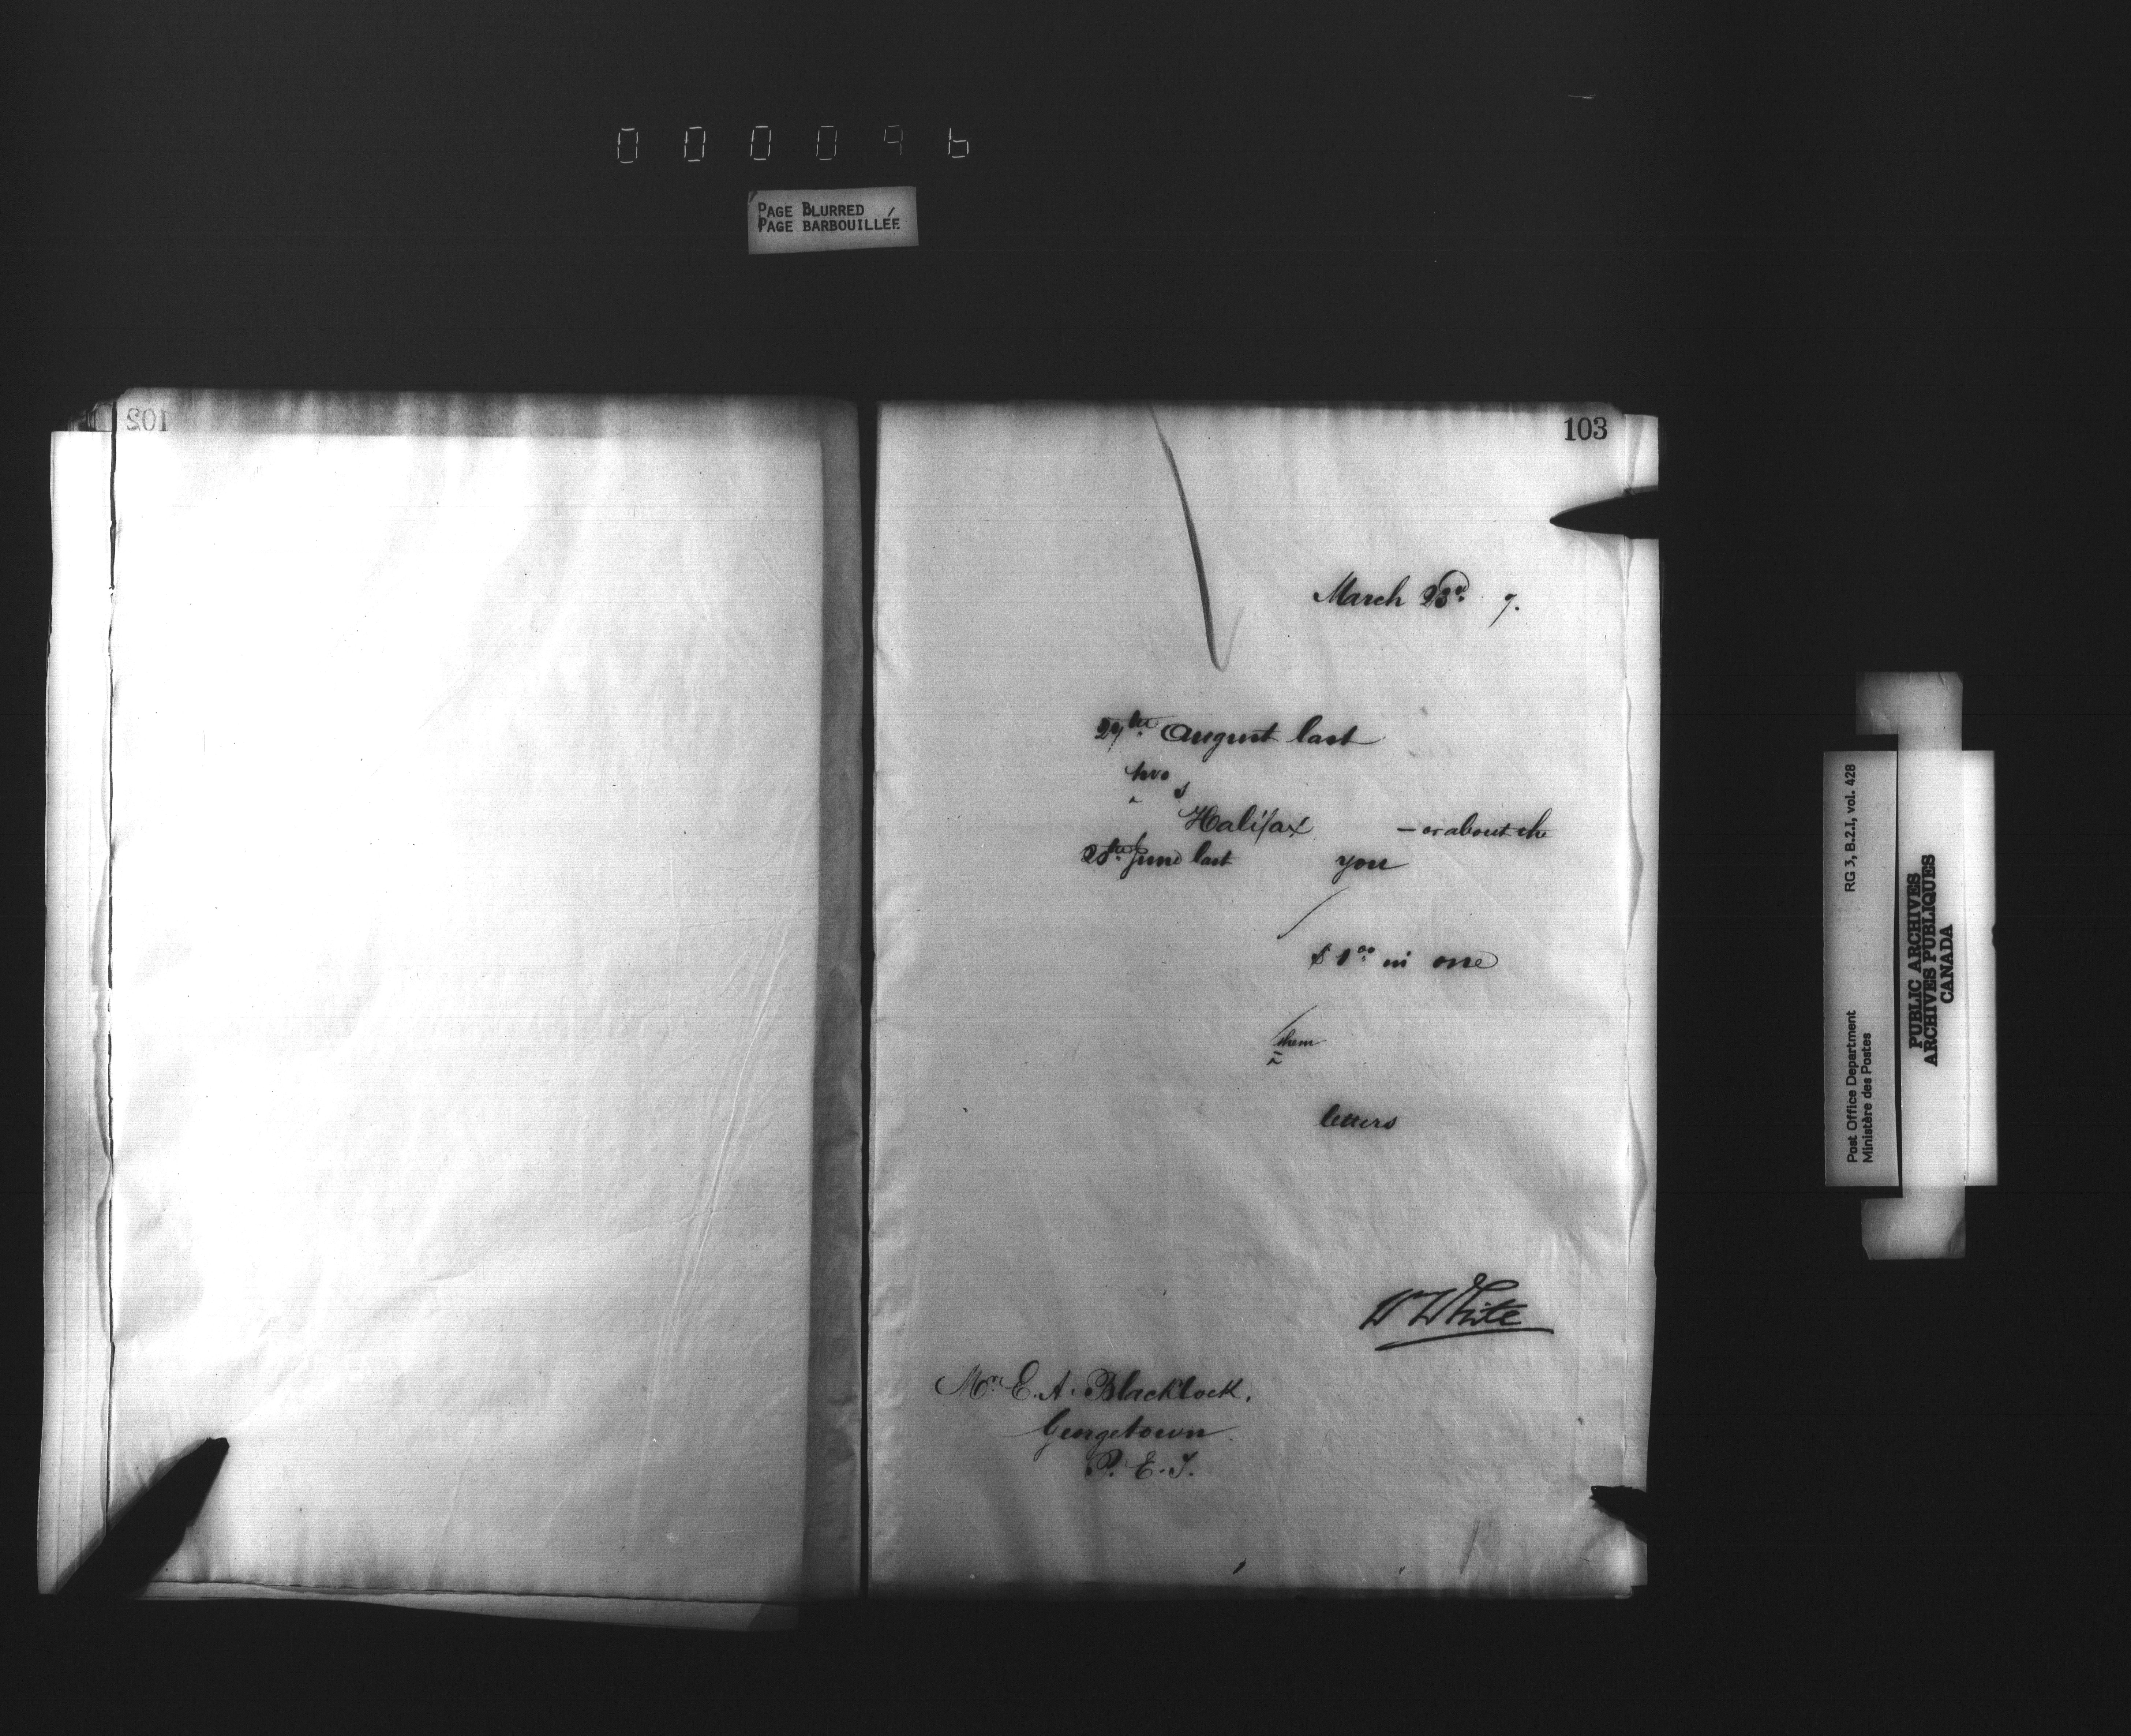 000096
PAGE BLURRED
PAGE BARBOUILLÉE
102
103
March 23rd 7.
27th August last
two
s
Halifax — or about the
28th June last you
$1.00 in one
them
letters
W White
Mr. E. A. Blacklock.
Georgetown.
P. E. I.
Post Office Department RG 3, B.2.I, vol. 428
Ministère des Postes
PUBLIC ARCHIVES
ARCHIVES PUBLIQUES
CANADA